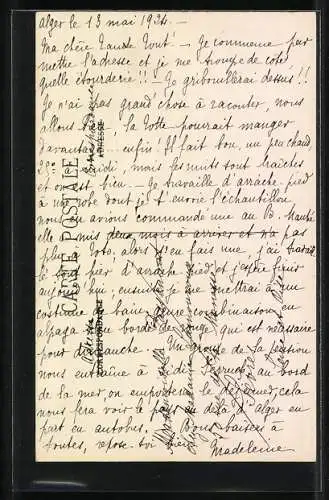 alger le 13 mai 1924 -
Ma chère Tante Tout! - Je commence par
mettre l'adresse et je me trompe de coté
quelle étourderie!! - Je gribouillerai dessus!!
Je n'ai pas grand chose à raconter, nous
allons la Totte pourrait manger
davantage enfin! Il fait bon, un peu chaud,
à midi, mais les nuits sont fraîches
et c'est bien - Je travaille d'arrache-pied
à une robe dont je t'envoie l'échantillon
nous en avions commandé une au Bo. Marché
elle a mis deux mois à arriver et n'a pas
plu à Toto, alors j'en fais une, j'ai travaillé
hier d'arrache pied et j'espère finir
aujourd'hui, ensuite je me mettrai à un
costume de bain, une combinaison en
alpaga bordé de rouge qui est nécessaire
pour dimanche. Un groupe de la pension
nous entraîne à Sidi Ferruch au bord
de la mer, on emportera le déjeuner, cela
nous fera voir le pays au delà d'Alger on
part en autobus. Bons baisers à
toutes, repose toi bien
Madeleine
CARTE POSTALE
CORRESPONDANCE
ADRESSE
Mademoiselle